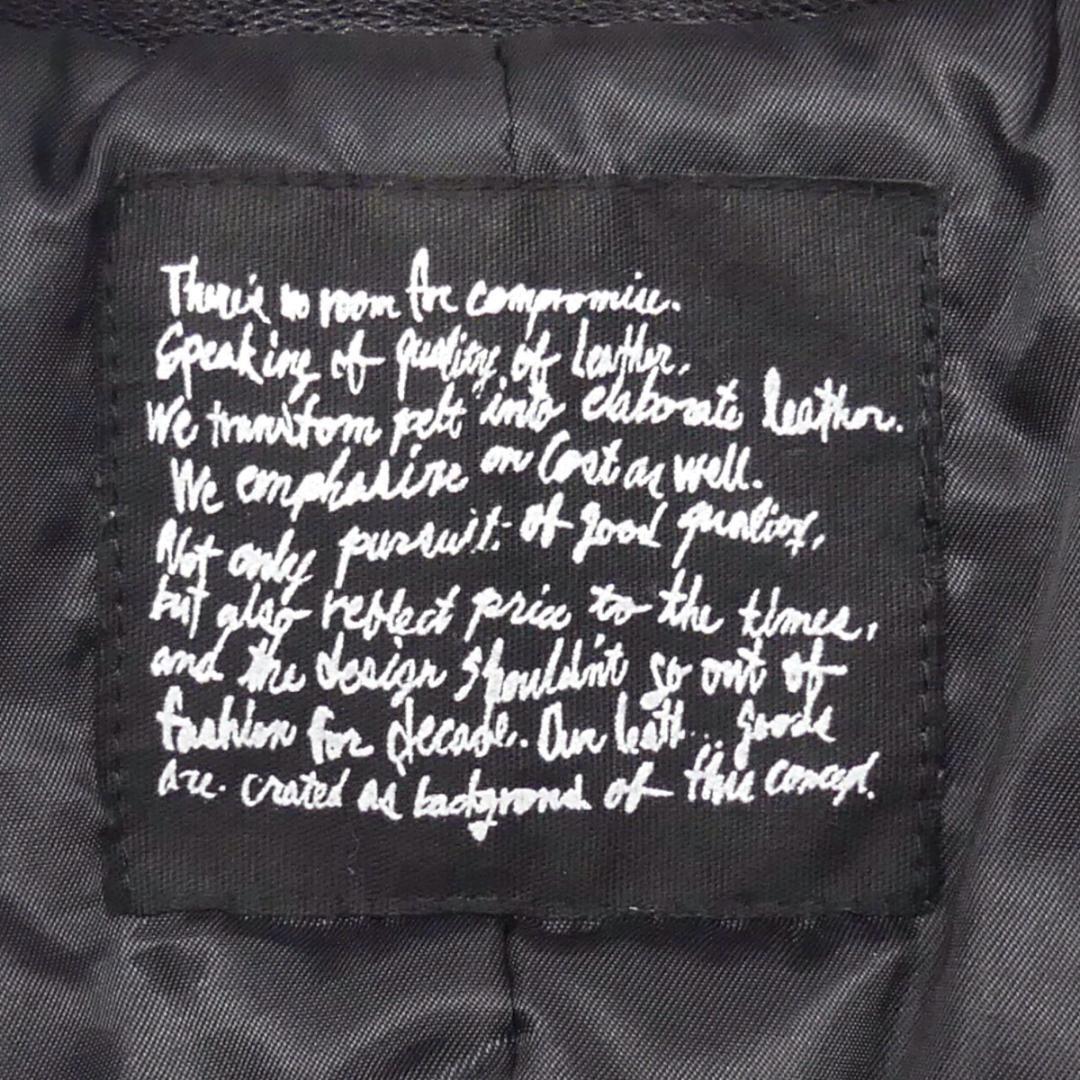 There's no room for compromise.
Speaking of quality of leather,
We transform pelt into elaborate leather.
We emphasize on Cost as well.
Not only pursuit of good quality,
but also reflect price to the times,
and the design shouldn't go out of
fashion for decade. Our goods
are crated as background of this concept.